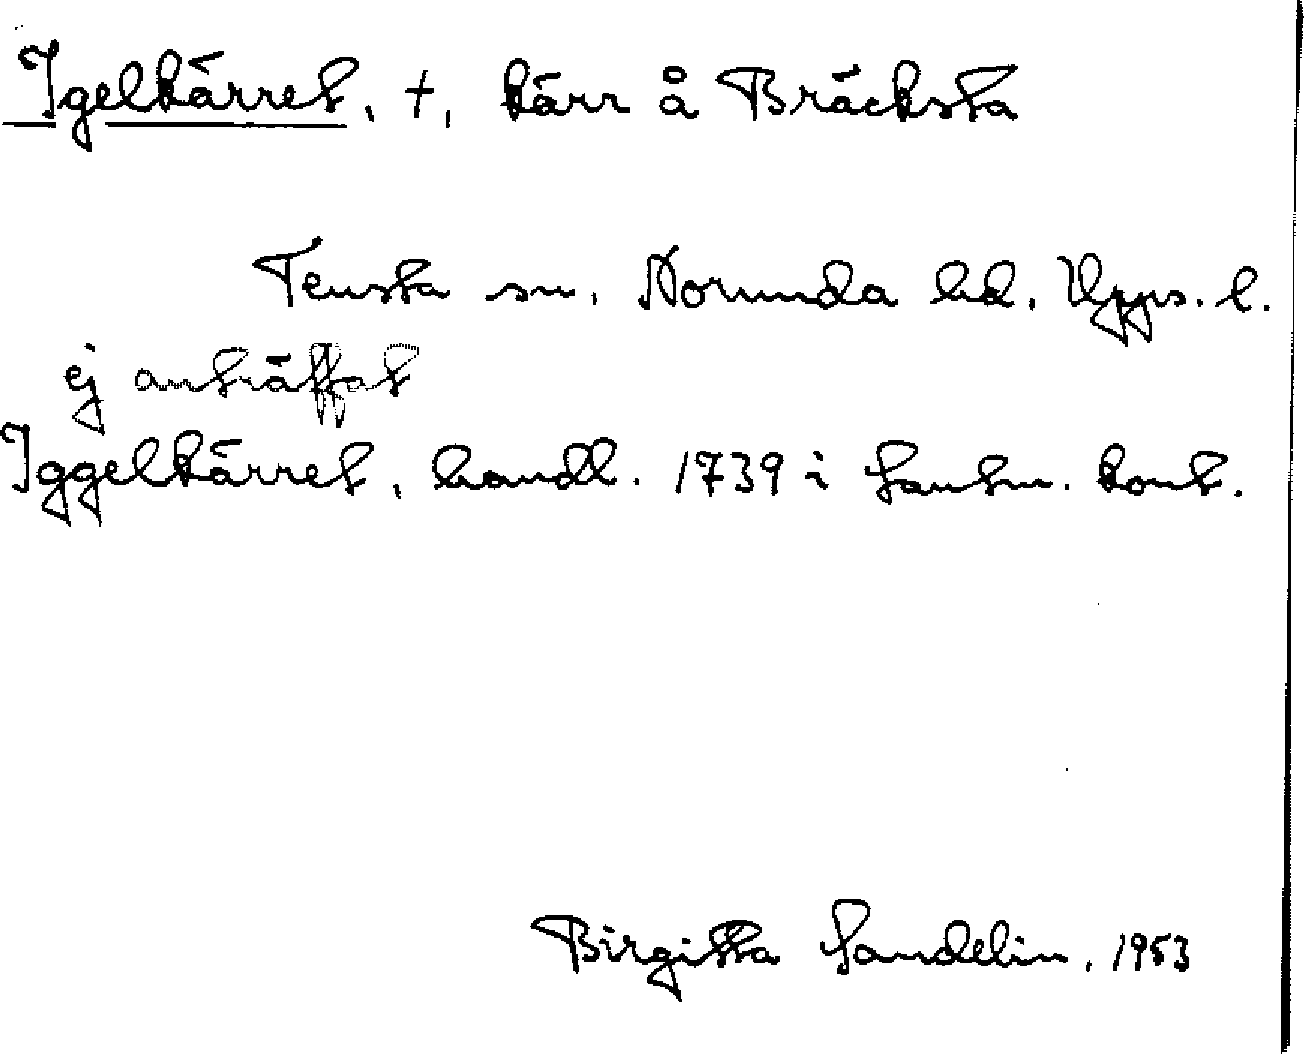 Igelkärret, +, kärr å Bräcksta
Tensta sn. Norunda hd. Upps. l.
ej anträffat
Iggelkärret, handl. 1739 i Lantm. kont.
Birgitta Sandelin, 1953